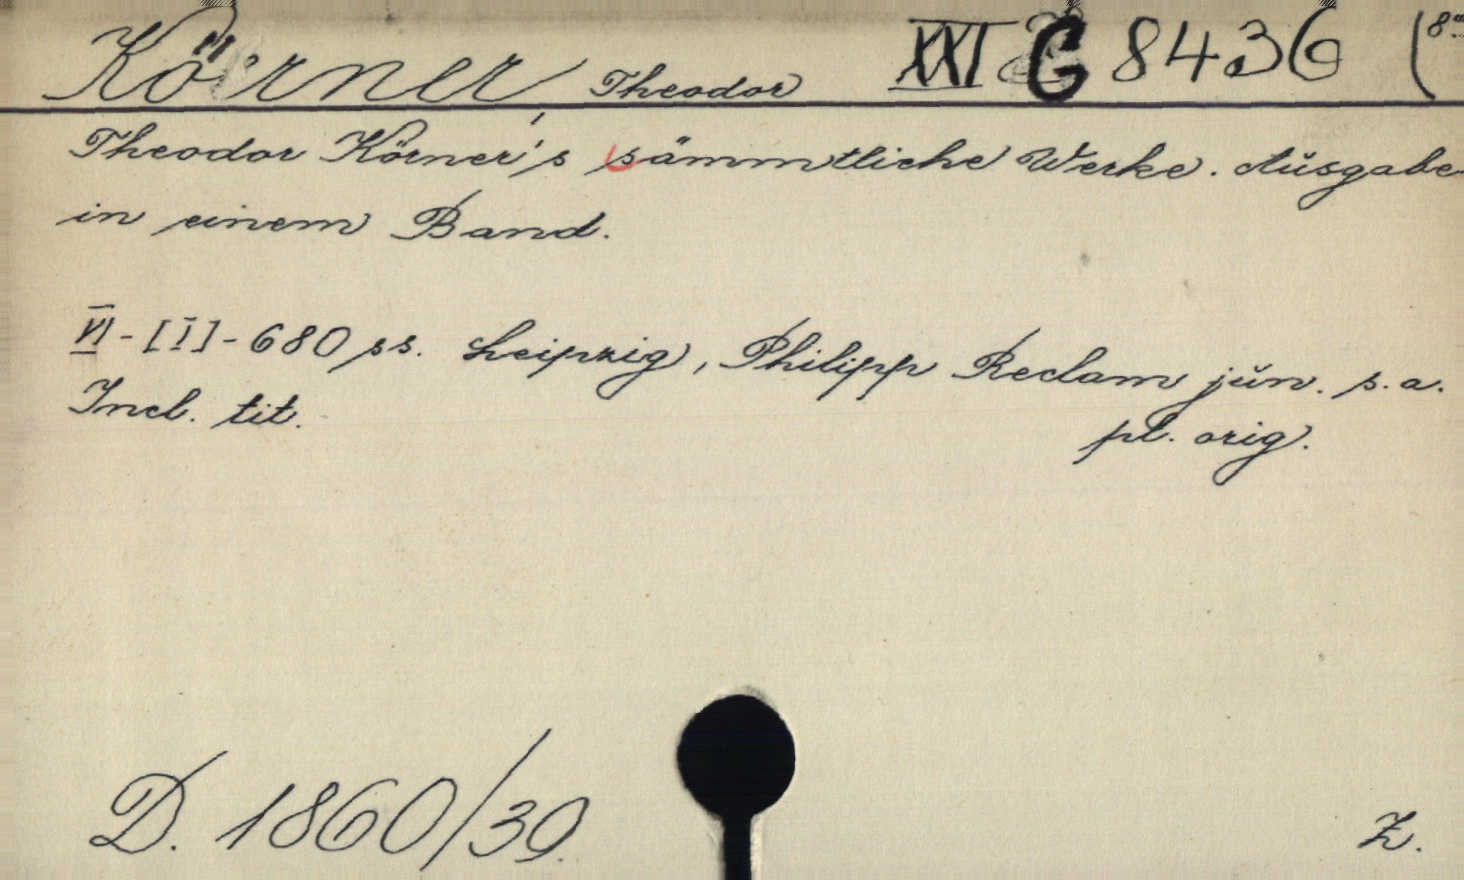 Körner Theodor XXI G 8436 (8°
Theodor Körner's sämmtliche Werke. Ausgabe
in einem Band.
VI-[I]-680 ss. Leipzig, Philipp Reclam jŭn. s.a.
Incl. tit.
pl. orig.
D. 1860/39.
Z.